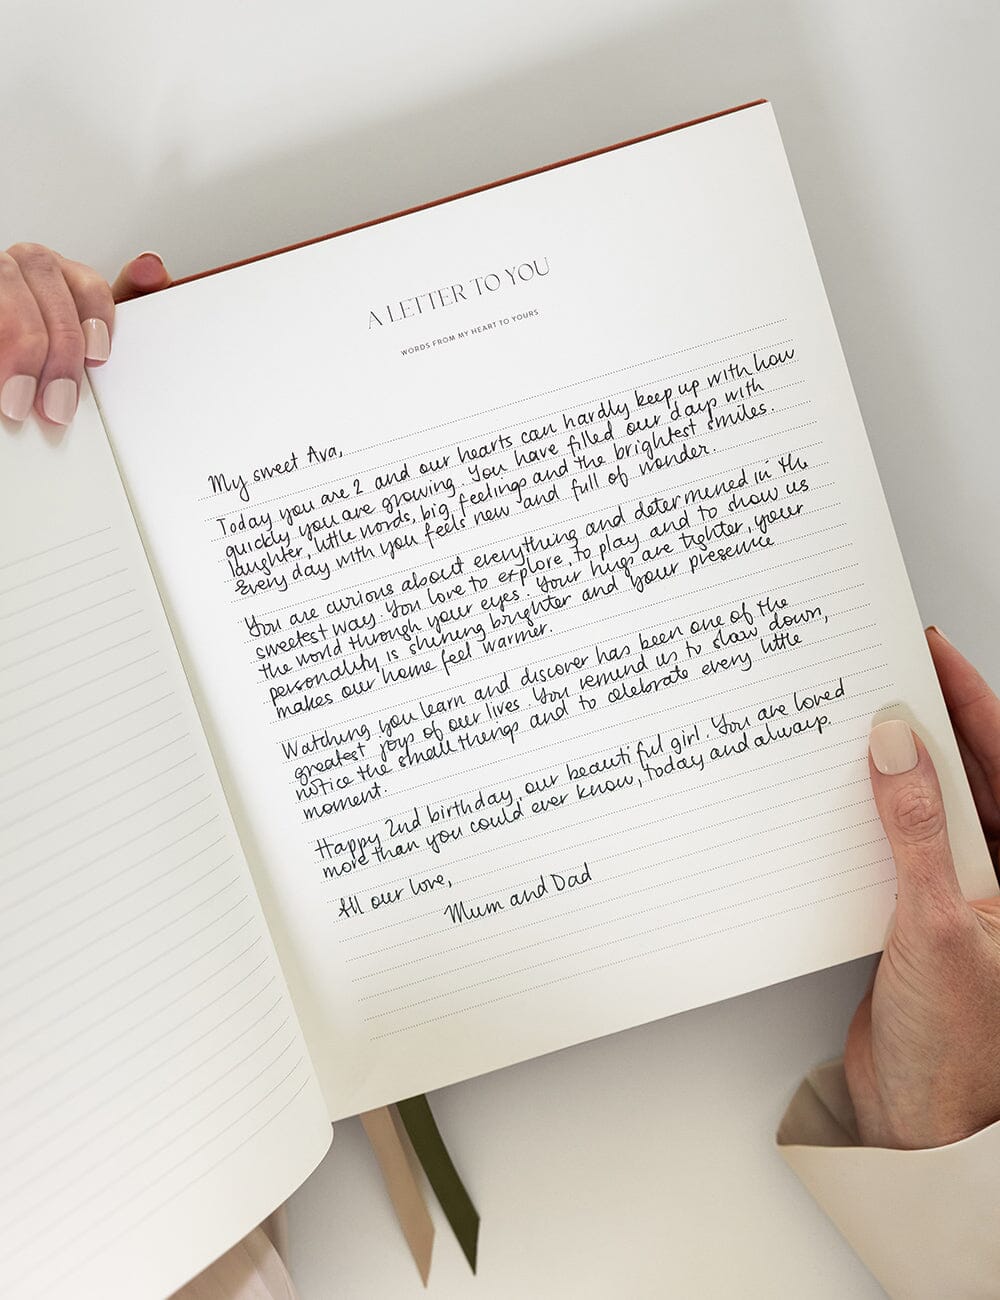 A LETTER TO YOU
WORDS FROM MY HEART TO YOURS
My sweet Ava,
Today you are 2 and our hearts can hardly keep up with how
quickly you are growing. You have filled our days with
laughter, little words, big feelings and the brightest smiles.
Every day with you feels new and full of wonder.
You are curious about everything and determined in the
sweetest way. You love to explore, to play and to show us
the world through your eyes. Your hugs are tighter, your
personality is shining brighter and your presence
makes our home feel warmer.
Watching you learn and discover has been one of the
greatest joys of our lives. You remind us to slow down,
notice the small things and to celebrate every little
moment.
Happy 2nd birthday, our beautiful girl. You are loved
more than you could ever know, today and always.
All our love,
Mum and Dad